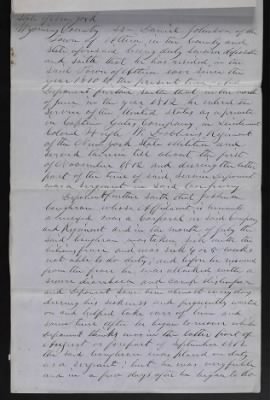 State of New York
Wyoming County SS Daniel Johnson of the
Town of in the county and
State aforesaid being duly sworn deposeth
and saith that he has resided in the
said Town of ever since the
year 1810 to the present time and
Deponent further saith that in the month
of June in the year 1812 he entered the
Service of the United States a private
in Captain Company in Lieutenant
Colonel Hugh W. Dobbins Regiment
of the New York State Militia and
served therein till about the first
of November 1812 and during the latter
part of the time of said service Deponent
was a Sergeant in said Company
Deponent further saith that
whose is hereunto
annexed was a Corporal in said Company
and Regiment and in the month of July the
said was taken sick with the
fever and was for 4 or 5 weeks
not able to do duty, and before he recovered
from the fever he was attacked with a
severe diarrhoea and Deponent
and deponent saw him almost every day
during his sickness and frequently waited
on and helped take care of him and
some time after he began to recover which
deponent thinks was in the latter part of
August or forepart of September 1812
the said was placed on duty
as a Sergeant; but he was very feeble
and in a few days after he began to do